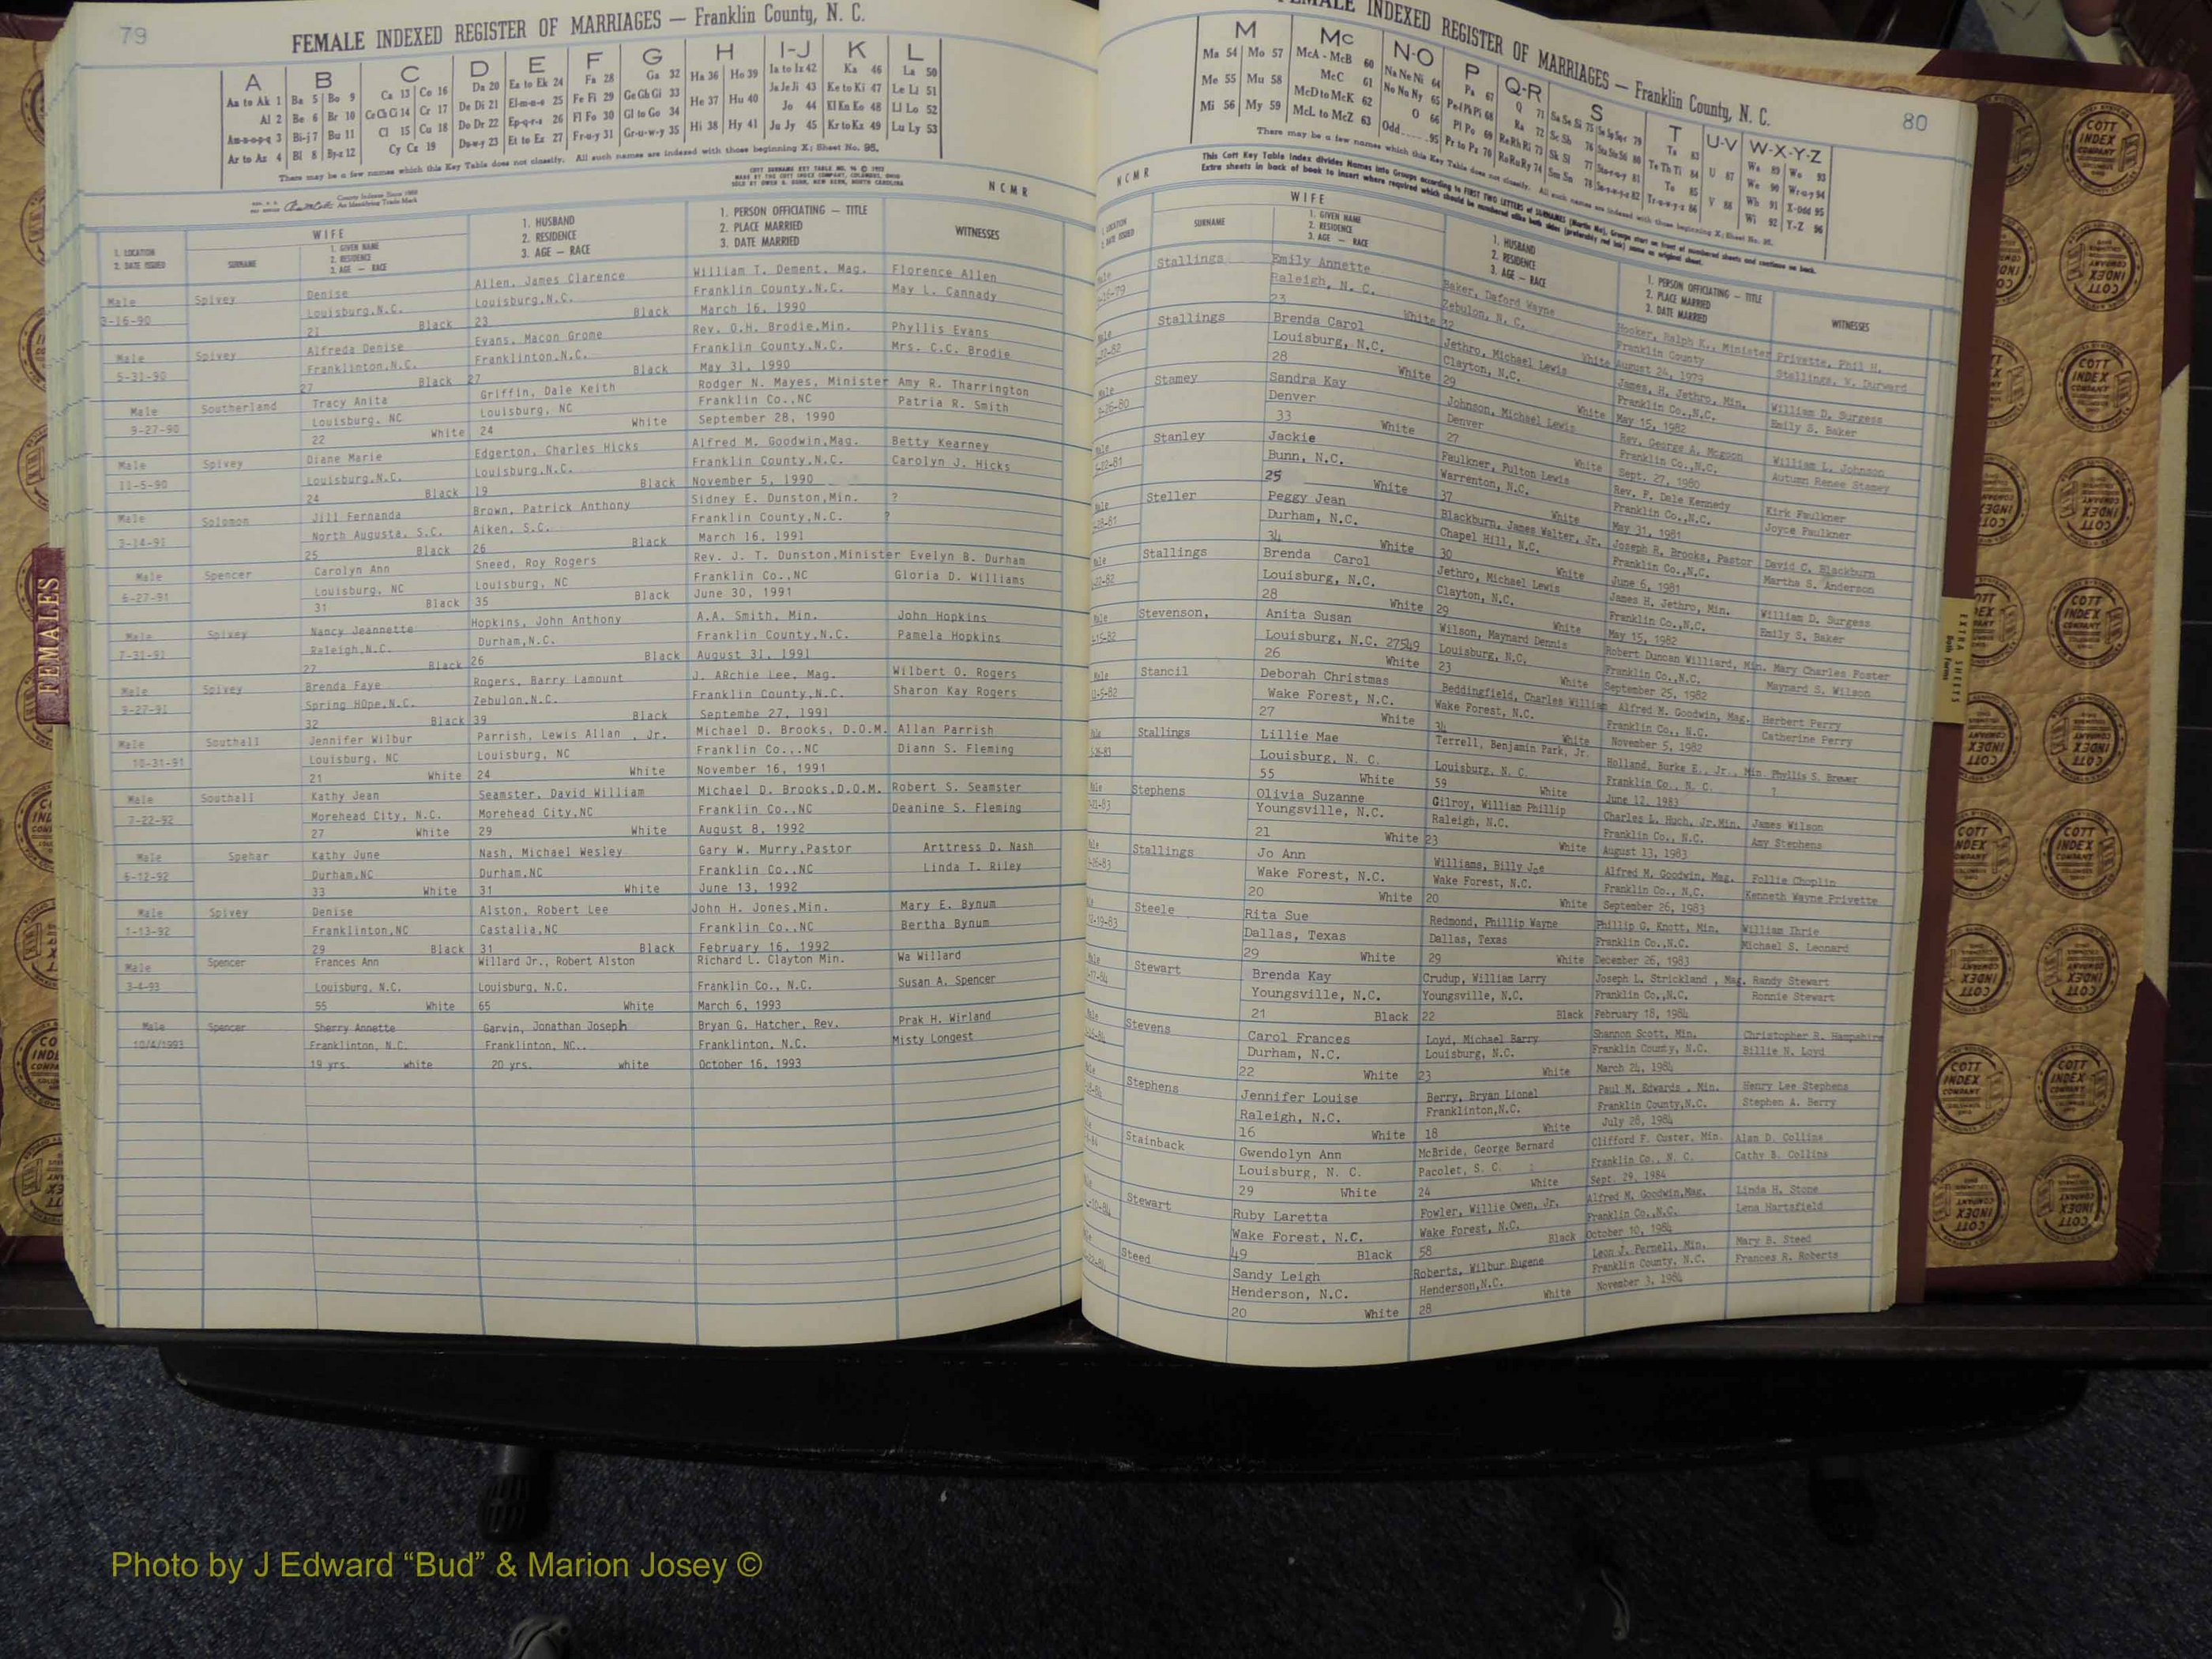 79
FEMALE INDEXED REGISTER OF MARRIAGES — Franklin County, N. C.
A B C D E F G H I-J K L
Aa to Ak 1 Ba 5 Bo 9 Ca 13 Co 16 Da 20 Ea to Ek 24 Fa 28 Ga 32 Ha 36 Ho 39 Ia to Iz 42 Ka 46 La 50
Al 2 Be 6 Br 10 Ce Ch Ci 14 Cr 17 De Di 21 El-m-n-o 25 Fe Fi 29 Ge Gh Gi 33 He 37 Hu 40 Ja Je Ji 43 Ke to Ki 47 Le Li 51
Am-n-o-p-q 3 Bi-j 7 Bu 11 Cl 15 Cu 18 Do Dr 22 Ep-q-r-s 26 Fl Fo 30 Gl to Go 34 Hi 38 Hy 41 Jo 44 Kl Kn Ko 48 Ll Lo 52
Ar to Az 4 Bl 8 By-z 12 Cy Cz 19 Du-w-y 23 Et to Ez 27 Fr-u-y 31 Gr-u-w-y 35 Ju Jy 45 Kr to Kz 49 Lu Ly 53
There may be a few names which this Key Table does not classify. All such names are indexed with those beginning X; Sheet No. 95.
County Indexes Since 1888
An Identifying Trade Mark
NCMR
1. LOCATION
2. DATE ISSUED
WIFE
SURNAME
1. GIVEN NAME
2. RESIDENCE
3. AGE — RACE
1. HUSBAND
2. RESIDENCE
3. AGE — RACE
1. PERSON OFFICIATING — TITLE
2. PLACE MARRIED
3. DATE MARRIED
WITNESSES
Male Spivey Denise Allen, James Clarence William T. Dement, Mag. Florence Allen
3-16-90 Louisburg,N.C. Louisburg,N.C. Franklin County,N.C. May L. Cannady
21 Black 23 Black March 16, 1990
Male Spivey Alfreda Denise Evans, Macon Grome Rev. O.H. Brodie,Min. Phyllis Evans
5-31-90 Franklinton,N.C. Franklinton,N.C. Franklin County,N.C. Mrs. C.C. Brodie
27 Black 27 Black May 31, 1990
Male Southerland Tracy Anita Griffin, Dale Keith Rodger N. Mayes, Minister Amy R. Tharrington
9-27-90 Louisburg, NC Louisburg, NC Franklin Co.,NC Patria R. Smith
22 White 24 White September 28, 1990
Male Spivey Diane Marie Edgerton, Charles Hicks Alfred M. Goodwin,Mag. Betty Kearney
11-5-90 Louisburg,N.C. Louisburg,N.C. Franklin County,N.C. Carolyn J. Hicks
24 Black 19 Black November 5, 1990
Male Solomon Jill Fernanda Brown, Patrick Anthony Sidney E. Dunston,Min. ?
3-14-91 North Augusta, S.C. Aiken, S.C. Franklin County,N.C. ?
25 Black 26 Black March 16, 1991
Male Spencer Carolyn Ann Sneed, Roy Rogers Rev. J. T. Dunston,Minister Evelyn B. Durham
6-27-91 Louisburg, NC Louisburg, NC Franklin Co.,NC Gloria D. Williams
31 Black 35 Black June 30, 1991
Male Spivey Nancy Jeannette Hopkins, John Anthony A.A. Smith, Min. John Hopkins
7-31-91 Raleigh,N.C. Durham,N.C. Franklin County,N.C. Pamela Hopkins
27 Black 26 Black August 31, 1991
Male Spivey Brenda Faye Rogers, Barry Lamount J. ARchie Lee, Mag. Wilbert O. Rogers
9-27-91 Spring HOpe,N.C. Zebulon,N.C. Franklin County,N.C. Sharon Kay Rogers
32 Black 39 Black Septembe 27, 1991
Male Southall Jennifer Wilbur Parrish, Lewis Allan , Jr. Michael D. Brooks, D.O.M. Allan Parrish
10-31-91 Louisburg, NC Louisburg, NC Franklin Co.,.NC Diann S. Fleming
21 White 24 White November 16, 1991
Male Southall Kathy Jean Seamster, David William Michael D. Brooks,D.O.M. Robert S. Seamster
7-22-92 Morehead City, N.C. Morehead City,NC Franklin Co.,NC Deanine S. Fleming
27 White 29 White August 8, 1992
Male Spehar Kathy June Nash, Michael Wesley Gary W. Murry,Pastor Arttress D. Nash
6-12-92 Durham,NC Durham,NC Franklin Co.,NC Linda T. Riley
33 White 31 White June 13, 1992
Male Spivey Denise Alston, Robert Lee John H. Jones,Min. Mary E. Bynum
1-13-92 Franklinton,NC Castalia,NC Franklin Co.,NC Bertha Bynum
29 Black 31 Black February 16, 1992
Male Spencer Frances Ann Willard Jr., Robert Alston Richard L. Clayton Min. Wa Willard
3-4-93 Louisburg, N.C. Louisburg, N.C. Franklin Co., N.C. Susan A. Spencer
55 White 65 White March 6, 1993
Male Spencer Sherry Annette Garvin, Jonathan Joseph Bryan G. Hatcher, Rev. Prak H. Wirland
10/4/1993 Franklinton, N.C. Franklinton, NC.. Franklinton, N.C. Misty Longest
19 yrs. white 20 yrs. white October 16, 1993
FEMALES
80
FEMALE INDEXED REGISTER OF MARRIAGES — Franklin County, N. C.
M Mc N-O P Q-R S T U-V W-X-Y-Z
Ma 54 Mo 57 McA - McB 60
Me 55 Mu 58 McC 61
Mi 56 My 59 McD to McK 62
McL to McZ 63
There may be a few names which this Key Table does not classify. All such names are indexed with those beginning X; Sheet No. 95.
NCMR
This Cott Key Table Index divides Names into Groups according to FIRST TWO LETTERS of SURNAMES
WIFE
SURNAME
1. GIVEN NAME
2. RESIDENCE
3. AGE — RACE
1. HUSBAND
2. RESIDENCE
3. AGE — RACE
1. PERSON OFFICIATING — TITLE
2. PLACE MARRIED
3. DATE MARRIED
WITNESSES
Stallings Emily Annette Baker, Daford Wayne Hooker, Ralph K., Minister Privette, Phil H.
Raleigh, N. C. Zebulon, N. C. Franklin County Stallings, W. Durward
23 White 32 White August 24, 1979
Stallings Brenda Carol Jethro, Michael Lewis James, H. Jethro, Min. William D. Surgess
Louisburg, N.C. Clayton, N.C. Franklin Co.,N.C. Emily S. Baker
28 White 29 White May 15, 1982
Stamey Sandra Kay Johnson, Michael Lewis Rev. George A. Mcgoon William L. Johnson
Denver Denver Franklin Co.,N.C. Autumn Renee Stamey
33 White 27 White Sept. 27, 1980
Stanley Jackie Faulkner, Fulton Lewis Rev. F. Dale Kennedy Kirk Faulkner
Bunn, N.C. Warrenton, N.C. Franklin Co.,N.C. Joyce Faulkner
25 White 37 White May 31, 1981
Steller Peggy Jean Blackburn, James Walter, Jr. Joseph R. Brooks, Pastor David C. Blackburn
Durham, N.C. Chapel Hill, N.C. Franklin Co.,N.C. Martha S. Anderson
34 White 30 White June 6, 1981
Stallings Brenda Carol Jethro, Michael Lewis James H. Jethro, Min. William D. Surgess
Louisburg, N.C. Clayton, N.C. Franklin Co.,N.C. Emily S. Baker
28 White 29 White May 15, 1982
Stevenson, Anita Susan Wilson, Maynard Dennis Robert Duncan Williard, Min. Mary Charles Foster
Louisburg, N.C. 27549 Louisburg, N.C. Franklin Co.,N.C. Maynard S. Wilson
26 White 23 White September 25, 1982
Stancil Deborah Christmas Beddingfield, Charles William Alfred M. Goodwin, Mag. Herbert Perry
Wake Forest, N.C. Wake Forest, N.C. Franklin Co., N.C. Catherine Perry
27 White 34 White November 5, 1982
Stallings Lillie Mae Terrell, Benjamin Park, Jr. Holland, Burke E., Jr., Min. Phyllis S. Brewer
Louisburg, N. C. Louisburg, N. C. Franklin Co., N. C. ?
55 White 59 White June 12, 1983
Stephens Olivia Suzanne Gilroy, William Phillip Charles L. Huch, Jr.Min. James Wilson
Youngsville, N.C. Raleigh, N.C. Franklin Co., N.C. Amy Stephens
21 White 23 White August 13, 1983
Stallings Jo Ann Williams, Billy Joe Alfred M. Goodwin, Mag. Follie Choplin
Wake Forest, N.C. Wake Forest, N.C. Franklin Co., N.C. Kenneth Wayne Privette
20 White 20 White September 26, 1983
Steele Rita Sue Redmond, Phillip Wayne Phillip G. Knott, Min. William Ihrie
12-19-83 Dallas, Texas Dallas, Texas Franklin Co.,N.C. Michael S. Leonard
29 White 29 White December 26, 1983
Stewart Brenda Kay Crudup, William Larry Joseph L. Strickland , Mag. Randy Stewart
Youngsville, N.C. Youngsville, N.C. Franklin Co.,N.C. Ronnie Stewart
21 Black 22 Black February 18, 1984
Stevens Carol Frances Loyd, Michael Barry Shannon Scott, Min. Christopher R. Hampshire
Durham, N.C. Louisburg, N.C. Franklin County, N.C. Billie N. Loyd
22 White 23 White March 24, 1984
Stephens Jennifer Louise Berry, Bryan Lionel Paul M. Edwards , Min. Henry Lee Stephens
Raleigh, N.C. Franklinton,N.C. Franklin County,N.C. Stephen A. Berry
16 White 18 White July 28, 1984
Stainback Gwendolyn Ann McBride, George Bernard Clifford F. Custer, Min. Alan D. Collins
Louisburg, N. C. Pacolet, S. C. Franklin Co., N. C. Cathy B. Collins
29 White 24 White Sept. 29, 1984
Stewart Ruby Laretta Fowler, Willie Owen, Jr. Alfred M. Goodwin,Mag. Linda H. Stone
Wake Forest, N.C. Wake Forest, N.C. Franklin Co.,N.C. Lena Hartsfield
49 Black 58 Black October 10, 1984
Steed Sandy Leigh Roberts, Wilbur Eugene Leon J. Pernell, Min. Mary B. Steed
Henderson, N.C. Henderson,N.C. Franklin County, N.C. Frances R. Roberts
20 White 28 White November 3, 1984
EXTRA SHEETS
COTT INDEX COMPANY
Photo by J Edward “Bud” & Marion Josey ©